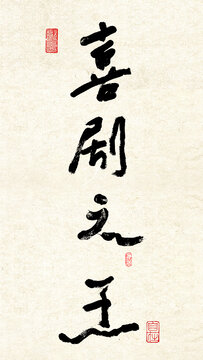 喜剧之王